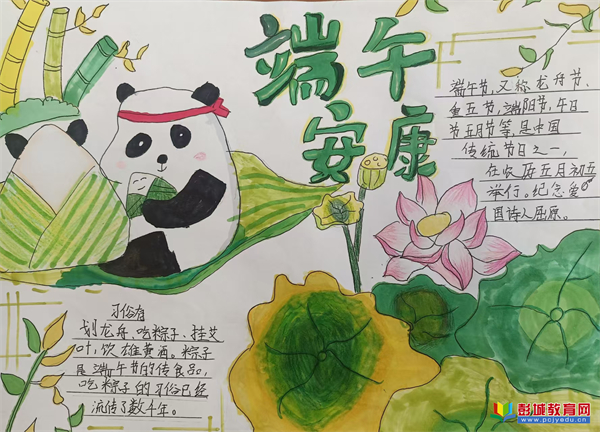 端午
安康
端午节,又称龙舟节、
重五节、端阳节,午日
节五月节等,是中国
传统节日之一,
在农历五月初五
举行。纪念爱
国诗人屈原。
习俗有
划龙舟、吃粽子、挂艾
叶,饮雄黄酒。粽子
是端午节的传食品,
吃粽子的习俗已经
流传了数千年。
彭城教育网
www.pcjyedu.cn